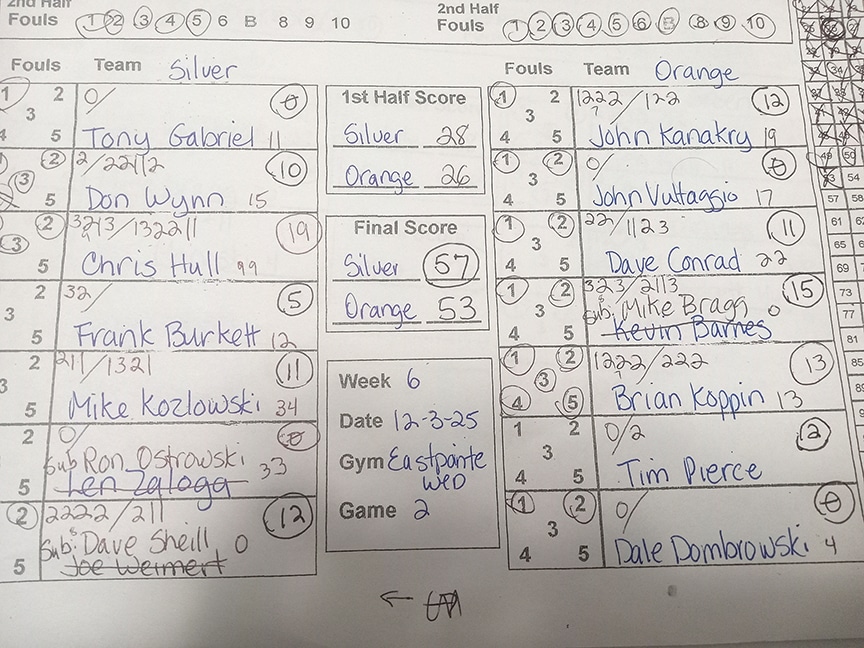 2nd Half
Fouls 1 2 3 4 5 6 B 8 9 10
2nd Half
Fouls 1 2 3 4 5 6 B 8 9 10
Fouls Team Silver
1 2 3 4 5
0/
0
Tony Gabriel 11
2 3 5
2/22112
10
Don Wynn 15
2 3 5
19
Chris Hull 99
2 3 5
32/
5
Frank Burkett 12
2 3 5
211/1321
11
Mike Kozlowski 34
2 5
0/
0
Sub Ron Ostrowski 33
Len Zaloga
2 5
2222/211
12
Sub: Dave Sheill 0
Joe Weimert
1st Half Score
Silver 28
Orange 26
Final Score
Silver 57
Orange 53
Week 6
Date 12-3-25
Gym Eastpointe
WED
Game 2
Fouls Team Orange
1 2 3 4 5
1222/122
12
John Kanakry 19
1 2 3 4 5
0/
0
John Vultaggio 17
1 2 3 4 5
22/1123
11
Dave Conrad 22
1 2 3 4 5
323/2113
15
Sub: Mike Bragg 0
Kevin Barnes
1 2 3 4 5
1222/222
13
Brian Koppin 13
1 2 3 4 5
0/2
2
Tim Pierce
1 2 3 4 5
0/
0
Dale Dombrowski 4
49 50
53 54
57 58
61
65
69
73
77
81
85
←